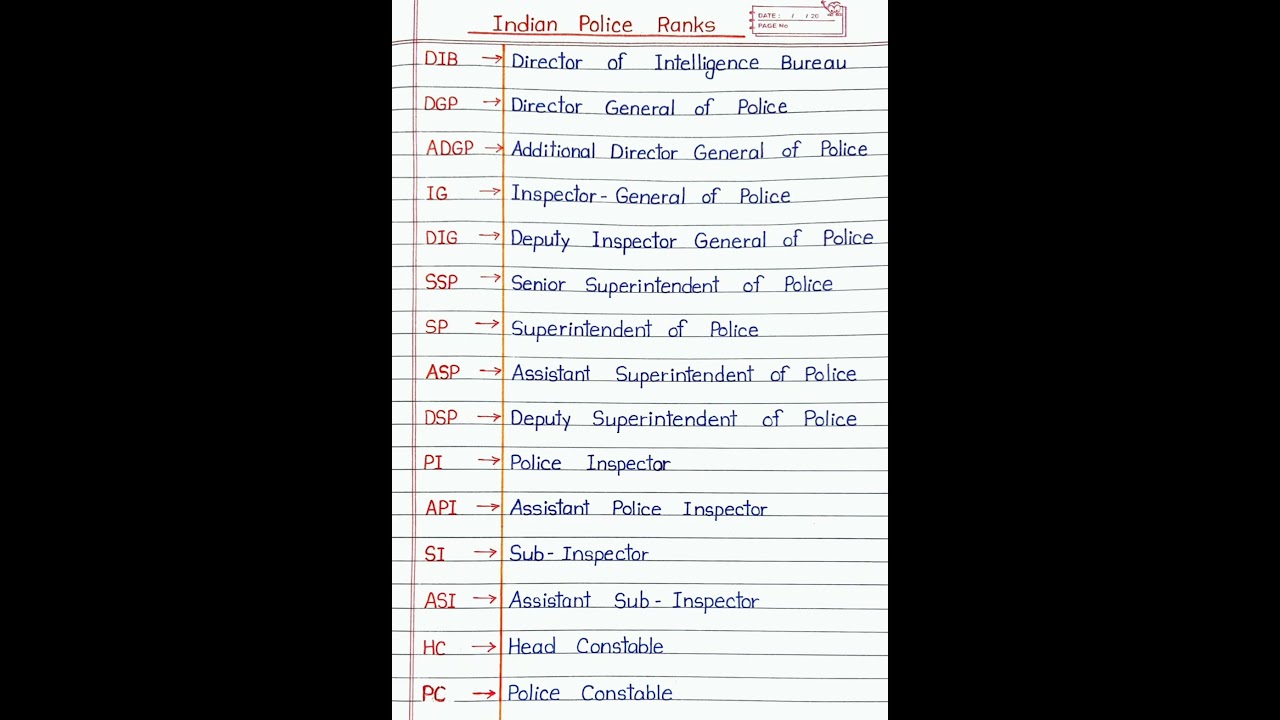 Indian Police Ranks
DATE : / / 20
PAGE No
DIB → Director of Intelligence Bureau
DGP → Director General of Police
ADGP → Additional Director General of Police
IG → Inspector-General of Police
DIG → Deputy Inspector General of Police
SSP → Senior Superintendent of Police
SP → Superintendent of Police
ASP → Assistant Superintendent of Police
DSP → Deputy Superintendent of Police
PI → Police Inspector
API → Assistant Police Inspector
SI → Sub-Inspector
ASI → Assistant Sub-Inspector
HC → Head Constable
PC → Police Constable